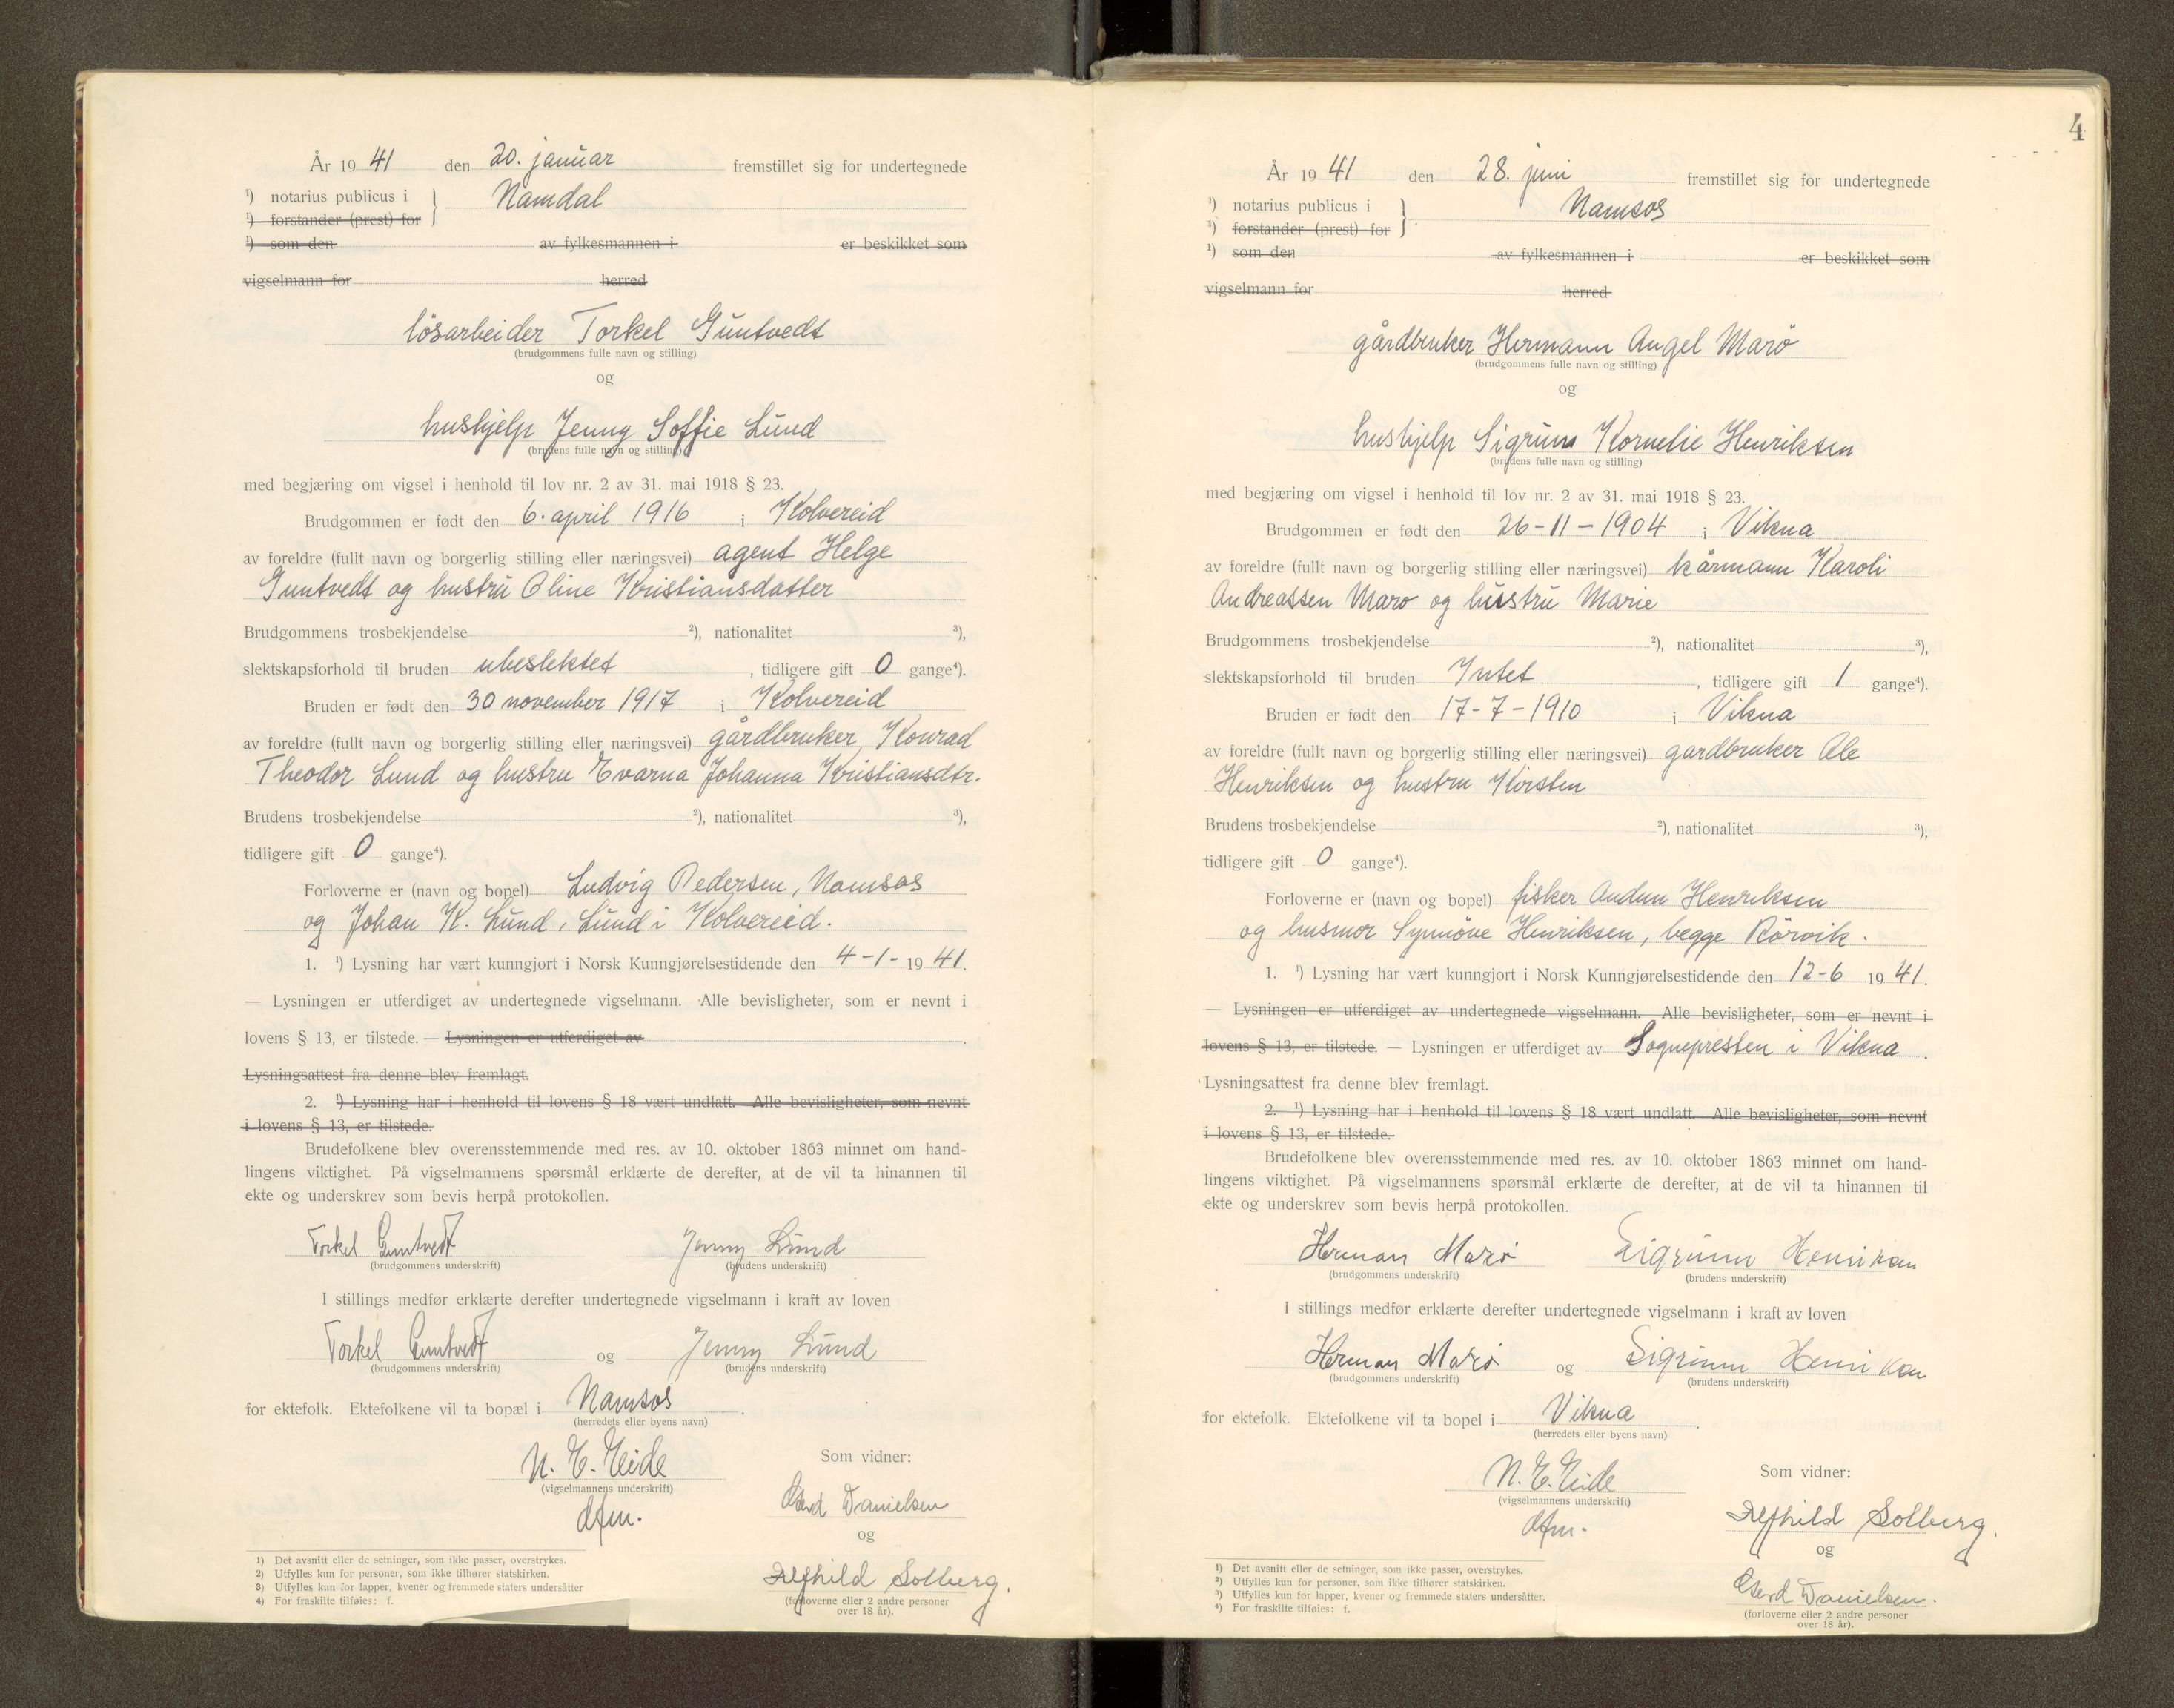 År 19 41 den 20. januar fremstillet sig for undertegnede
¹) notarius publicus i Namdal
¹) forstander (prest) for
¹) som den av fylkesmannen i er beskikket som
vigselmann for herred
lösarbeider Torkel Guntvedt
(brudgommens fulle navn og stilling)
og
hushjelp Jenny Soffie Lund
(brudens fulle navn og stilling)
med begjæring om vigsel i henhold til lov nr. 2 av 31. mai 1918 § 23.
Brudgommen er født den 6. april 1916 i Kolvereid
av foreldre (fullt navn og borgerlig stilling eller næringsvei) agent Helge
Guntvedt og hustru Oline Kristiansdatter
Brudgommens trosbekjendelse ²), nationalitet ³),
slektskapsforhold til bruden ubeslektet, tidligere gift 0 gange⁴).
Bruden er født den 30 november 1917 i Kolvereid
av foreldre (fullt navn og borgerlig stilling eller næringsvei) gårdbruker Konrad
Theodor Lund og hustru Evarna Johanna Kristiansdtr.
Brudens trosbekjendelse ²), nationalitet ³),
tidligere gift 0 gange⁴).
Forloverne er (navn og bopel) Ludvig Pedersen, Namsos
og Johan K. Lund, Lund i Kolvereid.
1. ¹) Lysning har vært kunngjort i Norsk Kunngjørelsestidende den 4-1- 19 41.
— Lysningen er utferdiget av undertegnede vigselmann. Alle bevisligheter, som er nevnt i
lovens § 13, er tilstede. — Lysningen er utferdiget av .
Lysningsattest fra denne blev fremlagt.
2. ¹) Lysning har i henhold til lovens § 18 vært undlatt. Alle bevisligheter, som nevnt
i lovens § 13, er tilstede.
Brudefolkene blev overensstemmende med res. av 10. oktober 1863 minnet om hand-
lingens viktighet. På vigselmannens spørsmål erklærte de derefter, at de vil ta hinannen til
ekte og underskrev som bevis herpå protokollen.
Torkel Guntvedt Jenny Lund
(brudgommens underskrift) (brudens underskrift)
I stillings medfør erklærte derefter undertegnede vigselmann i kraft av loven
Torkel Guntvedt og Jenny Lund
(brudgommens underskrift) (brudens underskrift)
for ektefolk. Ektefolkene vil ta bopæl i Namsos .
(herredets eller byens navn)
N. E. Eide
(vigselmannens underskrift)
dfm.
Som vidner:
Gerd Danielsen
og
Alfhild Solberg.
(forloverne eller 2 andre personer
over 18 år).
1) Det avsnitt eller de setninger, som ikke passer, overstrykes.
2) Utfylles kun for personer, som ikke tilhører statskirken.
3) Utfylles kun for lapper, kvener og fremmede staters undersåtter
4) For fraskilte tilføies: f.
4
År 19 41 den 28. juni fremstillet sig for undertegnede
¹) notarius publicus i Namsos
¹) forstander (prest) for
¹) som den av fylkesmannen i er beskikket som
vigselmann for herred
gårdbruker Hermann Angel Marö
(brudgommens fulle navn og stilling)
og
hushjelp Sigrunn Kornelie Henriksen
(brudens fulle navn og stilling)
med begjæring om vigsel i henhold til lov nr. 2 av 31. mai 1918 § 23.
Brudgommen er født den 26-11-1904 i Vikna
av foreldre (fullt navn og borgerlig stilling eller næringsvei) kårmann Karoli
Andreassen Marö og hustru Marie
Brudgommens trosbekjendelse ²), nationalitet ³),
slektskapsforhold til bruden Intet, tidligere gift 1 gange⁴).
Bruden er født den 17-7-1910 i Vikna
av foreldre (fullt navn og borgerlig stilling eller næringsvei) gardbruker Ole
Henriksen og hustru Kirsten
Brudens trosbekjendelse ²), nationalitet ³),
tidligere gift 0 gange⁴).
Forloverne er (navn og bopel) fisker Audun Henriksen
og husmor Synnöve Henriksen, begge Rörvik.
1. ¹) Lysning har vært kunngjort i Norsk Kunngjørelsestidende den 12-6 19 41.
— Lysningen er utferdiget av undertegnede vigselmann. Alle bevisligheter, som er nevnt i
lovens § 13, er tilstede. — Lysningen er utferdiget av Sognepresten i Vikna .
Lysningsattest fra denne blev fremlagt.
2. ¹) Lysning har i henhold til lovens § 18 vært undlatt. Alle bevisligheter, som nevnt
i lovens § 13, er tilstede.
Brudefolkene blev overensstemmende med res. av 10. oktober 1863 minnet om hand-
lingens viktighet. På vigselmannens spørsmål erklærte de derefter, at de vil ta hinannen til
ekte og underskrev som bevis herpå protokollen.
Herman Marö Sigrunn Henriksen
(brudgommens underskrift) (brudens underskrift)
I stillings medfør erklærte derefter undertegnede vigselmann i kraft av loven
Herman Marö og Sigrunn Henriksen
(brudgommens underskrift) (brudens underskrift)
for ektefolk. Ektefolkene vil ta bopel i Vikna .
(herredets eller byens navn)
N. E. Eide
(vigselmannens underskrift)
dfm.
Som vidner:
Alfhild Solberg.
og
Gerd Danielsen.
(forloverne eller 2 andre personer
over 18 år).
¹) Det avsnitt eller de setninger, som ikke passer, overstrykes.
²) Utfylles kun for personer, som ikke tilhører statskirken.
³) Utfylles kun for lapper, kvener og fremmede staters undersåtter.
⁴) For fraskilte tilføies: f.